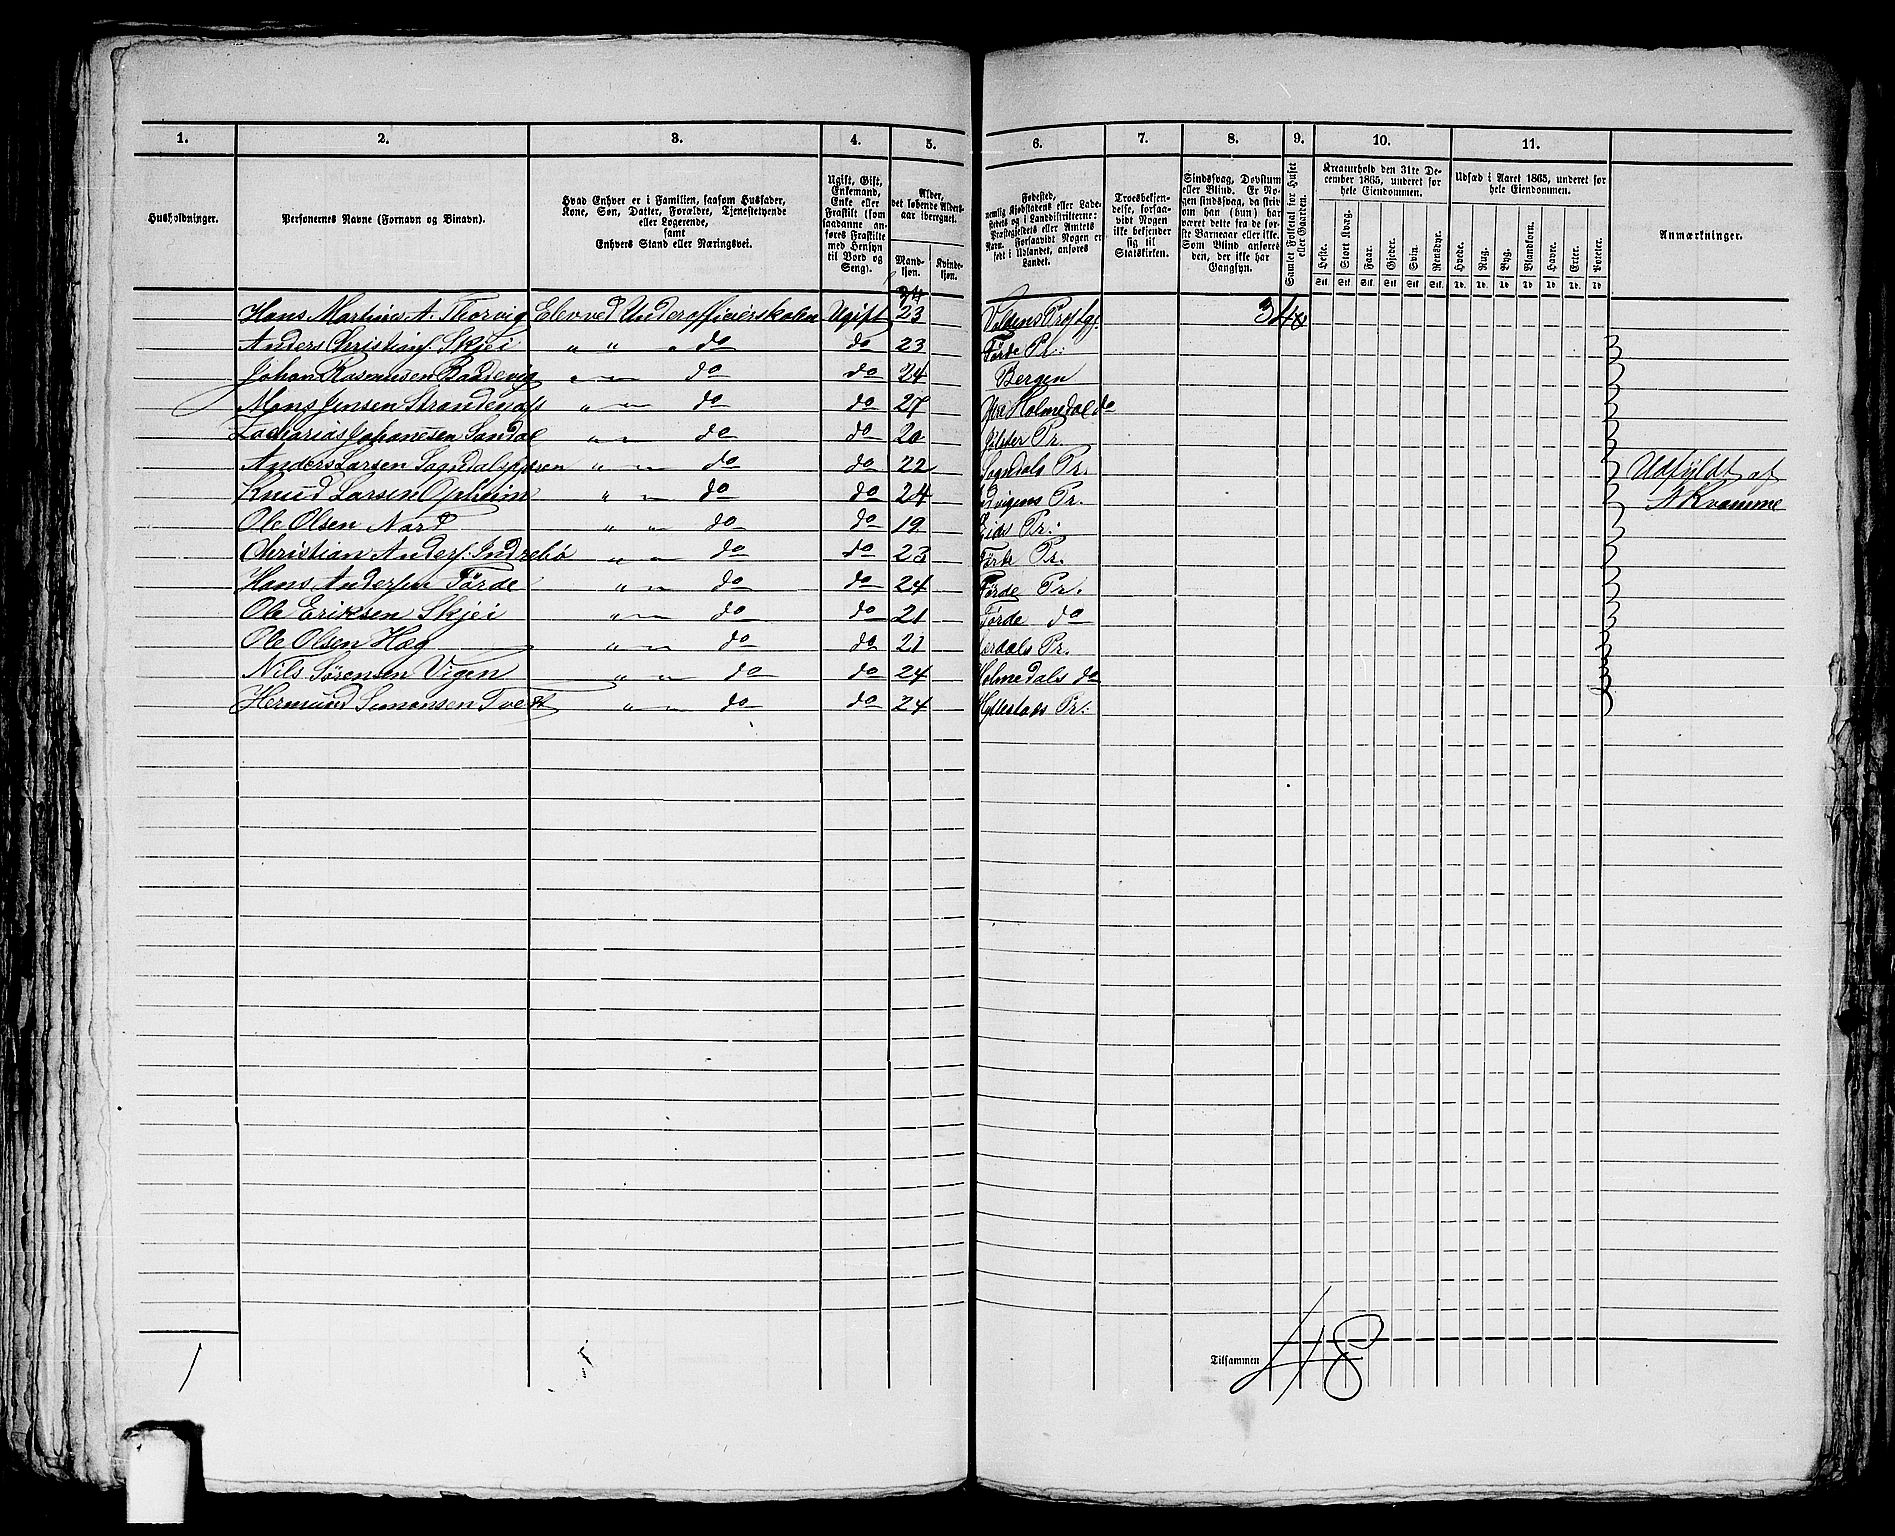 1. 2. 3. 4. 5. 6. 7. 8. 9. 10. 11.
Husholdninger.
Personernes Navne (Fornavn og Binavn).
Hvad Enhver er i Familien, saasom Husfader,
Kone, Søn, Datter, Forældre, Tjenestetyende
eller Logerende,
samt
Enhvers Stand eller Næringsvei.
Ugift, Gift,
Enkemand,
Enke eller
Fraskilt (som
saadanne an-
føres Fraskilte
med Hensyn
til Bord og
Seng).
Alder,
det løbende Alders-
aar iberegnet.
Mand-
kjøn.
Kvinde-
kjøn.
Fødested,
nemlig Kjøbstadens eller Lade-
stedets og i Landdistrikterne:
Præstegjeldets eller Amtets
Navn. Forsaavidt Nogen er
født i Udlandet, anføres
Landet.
Troesbekjen-
delse, forsaa-
vidt Nogen
ikke bekjender
sig til
Statskirken.
Sindssvag, Døvstum
eller Blind. Er No-
gen sindssvag, da skriv
om han (hun) har
været dette fra de før-
ste Barneaar eller ikke.
Som Blind anføres
den, der ikke har
Gangsyn.
Samlet Folketal for Huset
eller Gaarden.
Kreaturhold den 31te De-
cember 1865, underet for
hele Eiendommen.
Heste. Stort Kvæg. Faar. Gjeder. Svin. Rensdyr.
Stk. Stk. Stk. Stk. Stk. Stk.
Udsæd i Aaret 1865, underet for
hele Eiendommen.
Hvede. Rug. Byg. Blandkorn. Havre. Erter. Poteter.
Td. Td. Td. Td. Td. Td. Td.
Anmærkninger.
34
Hans Martinus A. Thorvig Elev ved Underofficierskolen Ugift 23 34
Anders Christians. Skjei " " " do do 23 Førde Pr:
Johan Rasmusen Baddevig " " do do 24 Bergen
Mons Jensen Strandenæs " " do do 27 Holmedal do
Zacharias Johanesen Sandal " " do do 20 Jølster Pr.
Anders Larsen Sogndalsfjøren " " do do 22 Sogndals Pr. Udfyldt af
Knud Larsen Opheim " " do do 24 Pr. A Kvamme
Ole Olsen Nord " " do do 19 Eids Pr:
Christian Anders. Indrebø " " do do 23 Førde Pr.
Hans Andersen Førde " " do do 24 Førde Pr.
Ole Eriksen Skjei " " do do 21 Førde do
Ole Olsen Hæg " " do do 21 Lerdals Pr.
Nils Sørensen Vigen " " do do 24 Holmedals do
Hermund Simonsen Tvedt " " do do 24 Hyllestads Pr:
1
Tilsammen 48